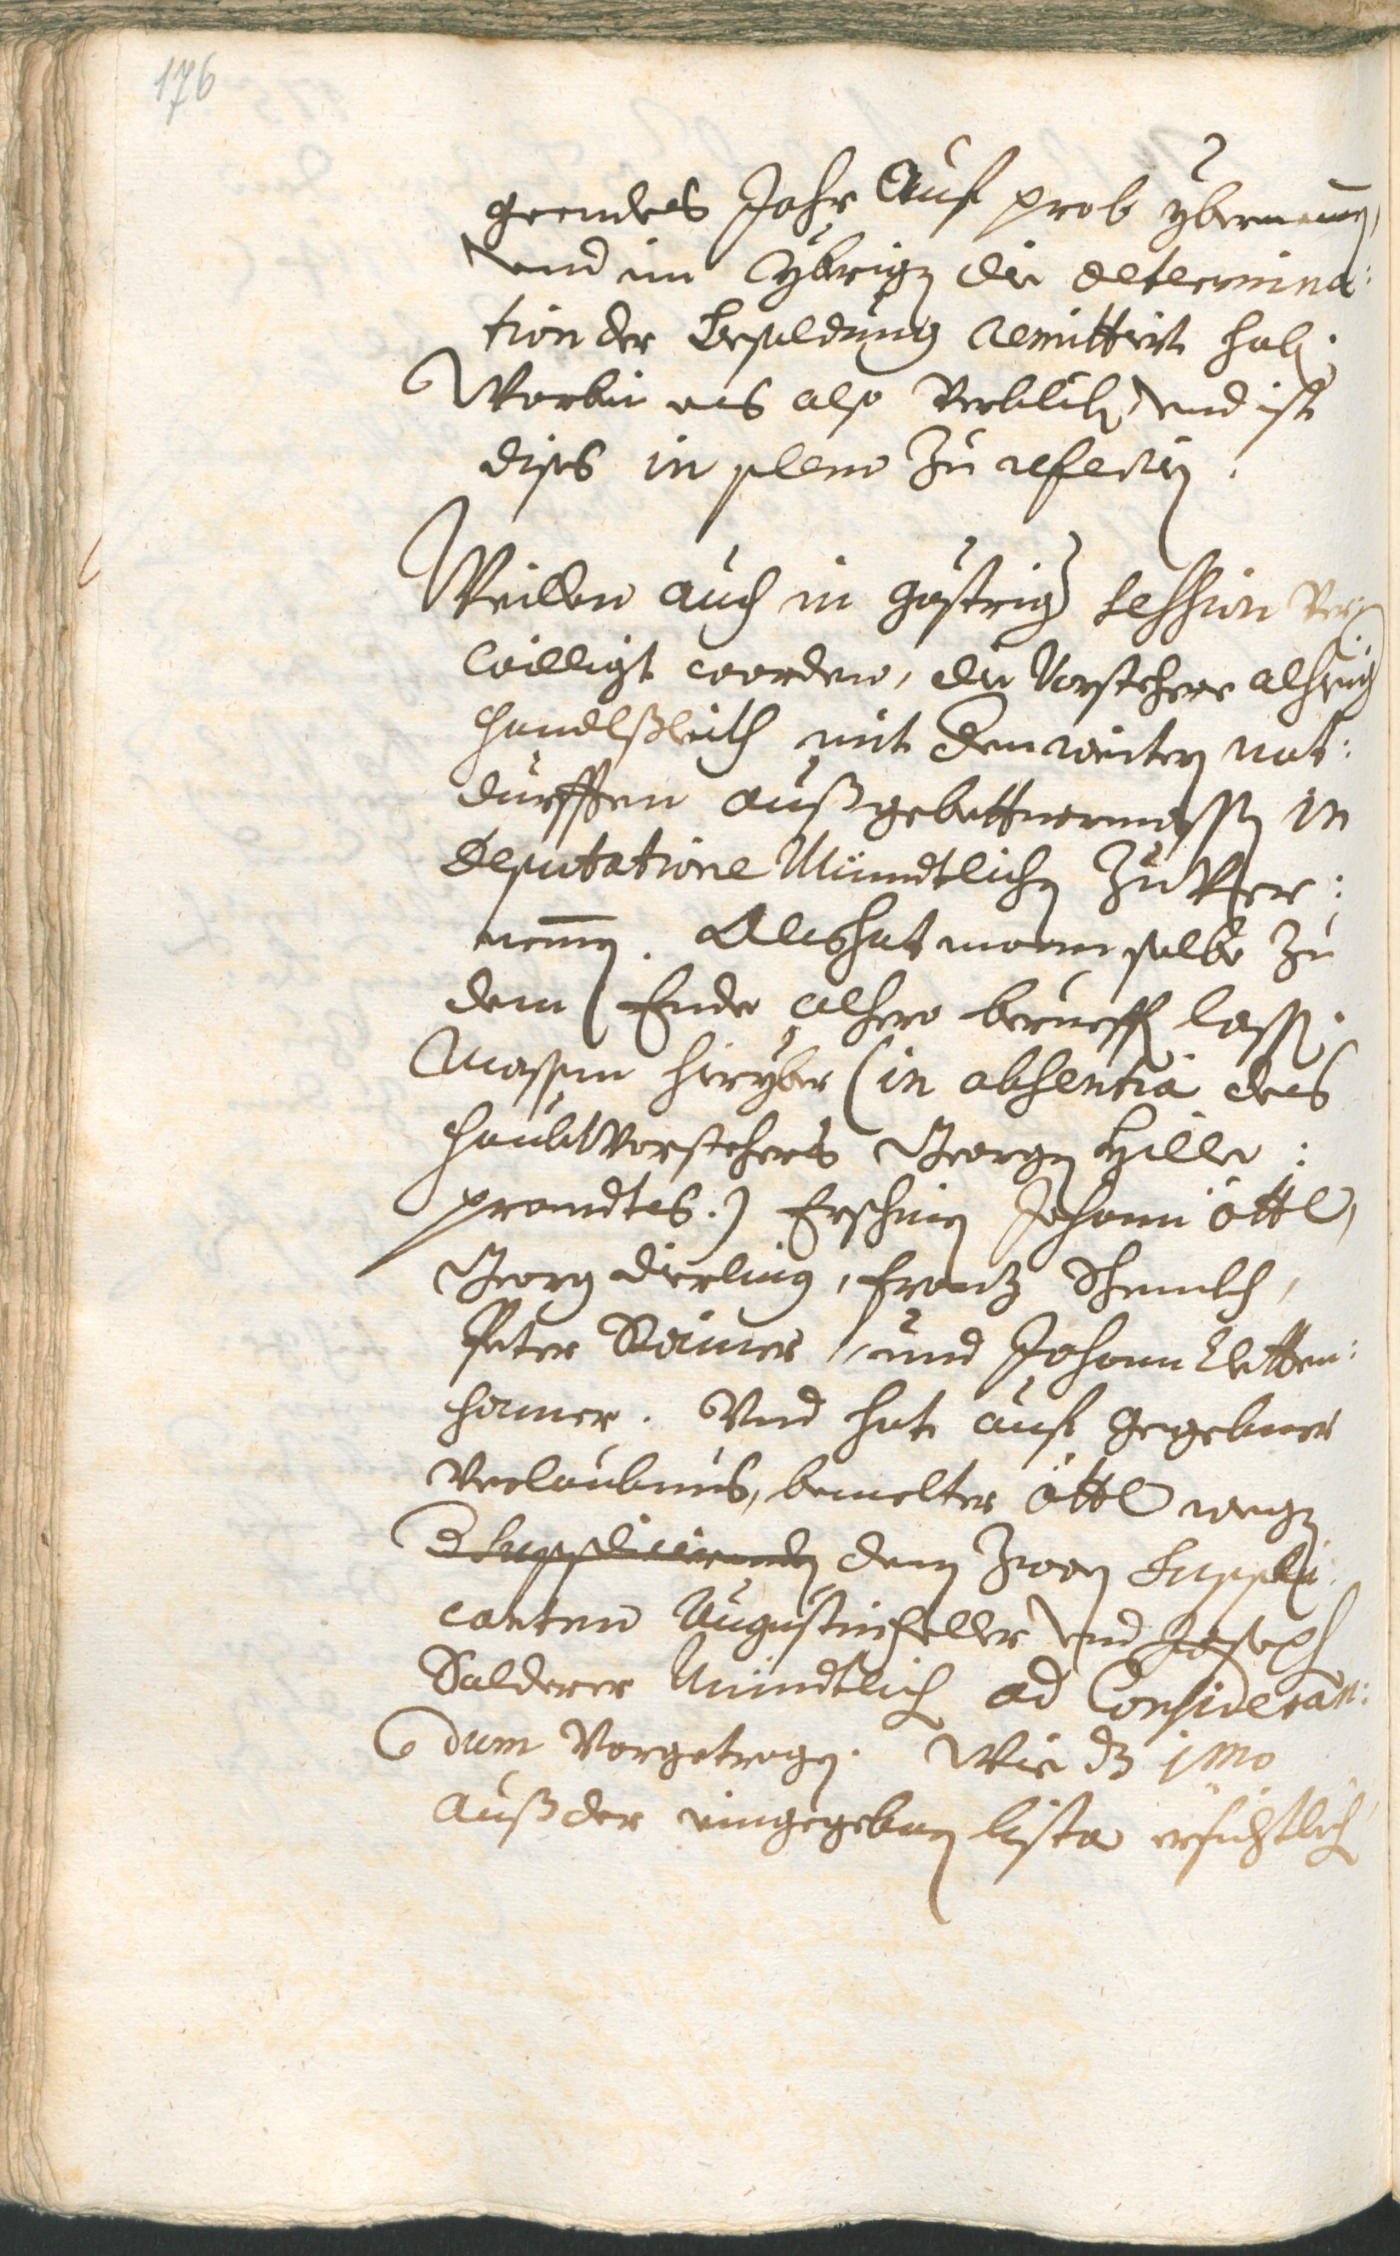 176
geendes Jahr auf prob ybernemmen,
und im Ybrigen die determina:
tion der Besoldung remittirt hab.
Warbei es also verblib, und ist
dises in pleno zu referiren.
Weillen auch in gestriger session ver:
willigt worden, die Vorstehere alhiesig
Handlßleith mit den weitern not:
durfften außgebettnermassen in
Deputatione Mündtlichen zu Ver:
nemmen. Als hat man selbe zu
dem Ende alhero berueffen lassen.
Massen hieryber (in absentia des
Haubtvorstehers Georgen Hille:
prandtes.) Erschinen Johann Öttl,
Georg Dierling, Frantz Schmuckh,
Peter Rainer, und Johann Letten:
hamer. Und hat auf gegebner
Verlaubnus, bemelter Öttl wegen
Supplicirenden denen zween Suppli:
canten Augustin Heller und Joseph
Salderer Mündtlich ad Consideran:
dum Vorgetragen. Wie dz 1mo
auß der eingegebnen lista ersichtlich